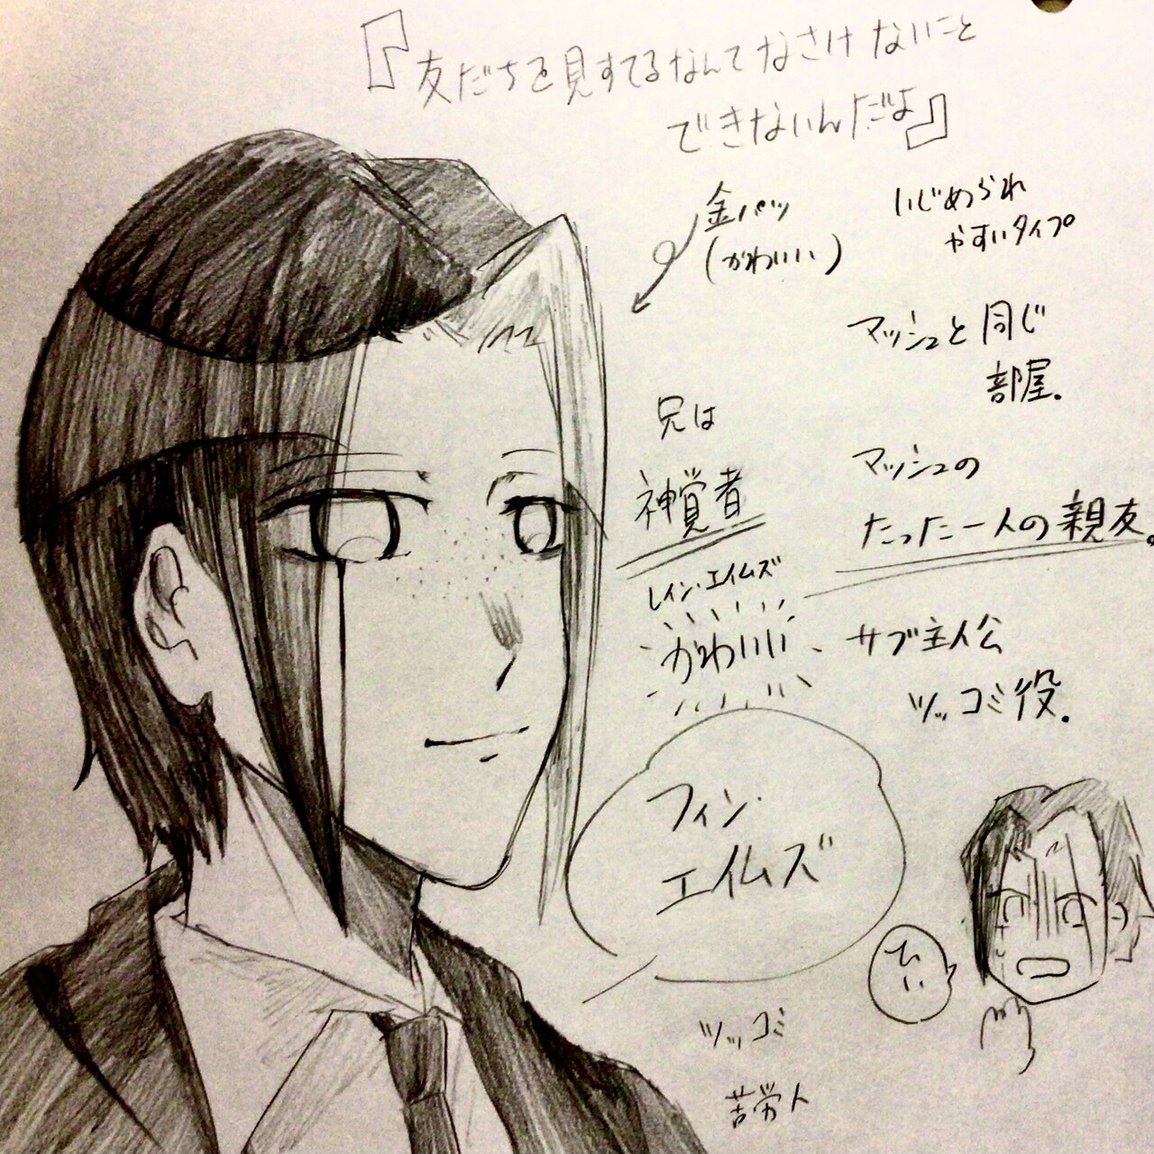 『友だちを見すてるなんてなさけないこと
できないんだよ』
金パツ
(かわいい)
いじめられ
やすいタイプ
マッシュと同じ
部屋.
兄は
神覚者
レイン・エイムズ
かわいい
マッシュの
たった一人の親友。
サブ主人公
ツッコミ役.
フィン・
エイムズ
ひい
ツッコミ
苦労人